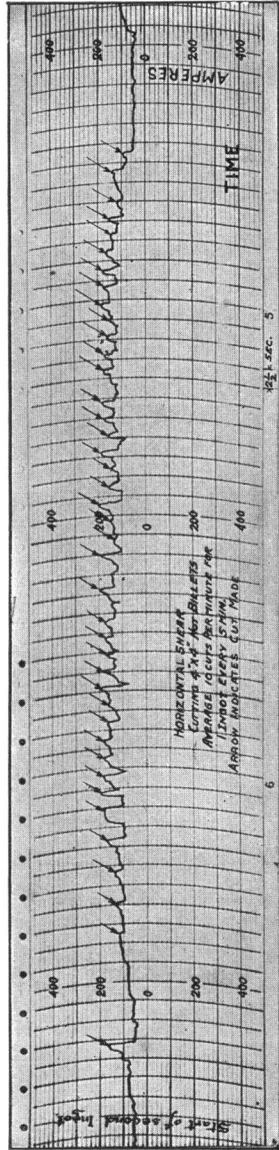 400
200
0
200
400
AMPERES
TIME
5
12½ SEC.
400
200
0
200
400
HORIZONTAL SHEAR
CUTTING 4"X4" HOT BILLETS
AVERAGE 10 CUTS PER MINUTE FOR
1 INGOT EVERY 5 MIN.
ARROW INDICATES CUT MADE
6
400
200
0
200
400
Start of second Ingot